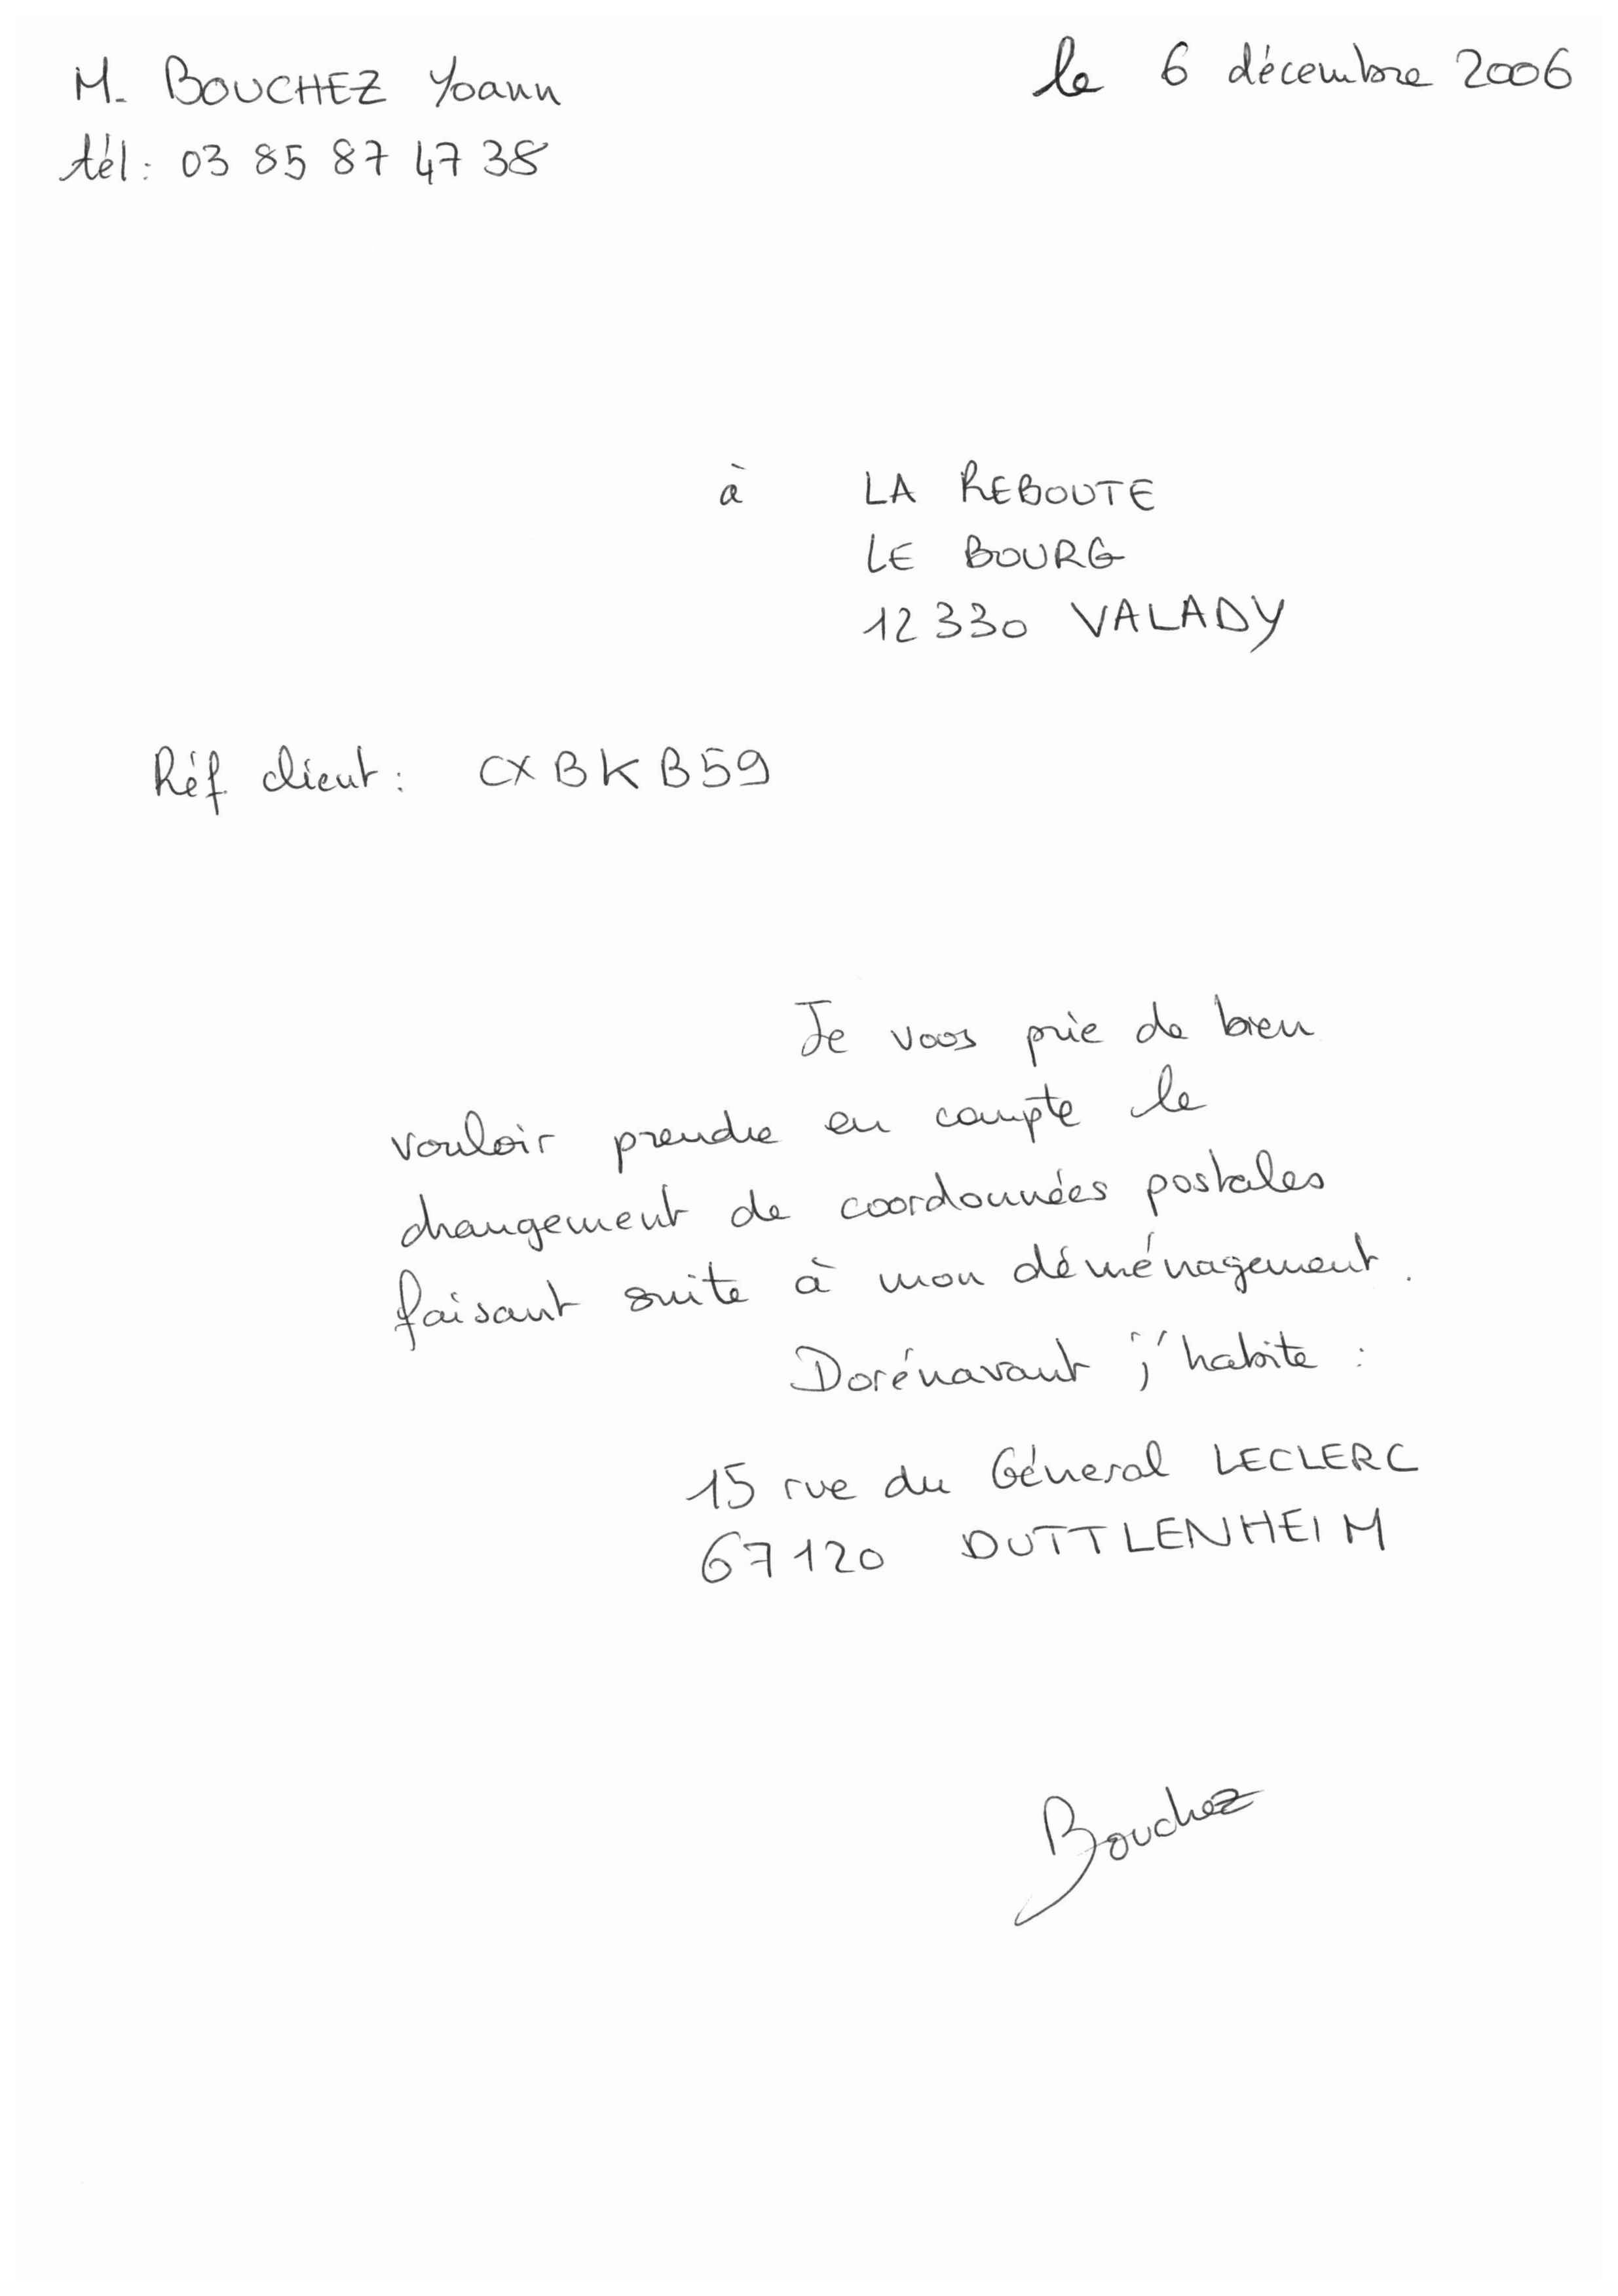 M. BOUCHEZ Yoann
le 6 décembre 2006
tél : 03 85 87 47 38
à LA REBOUTE
LE BOURG
12330 VALADY
Réf client : CXBKB59
Je vous prie de bien
vouloir prendre en compte le
changement de coordonnées postales
faisant suite à mon déménagement.
Dorénavant j'habite :
15 rue du Géneral LECLERC
67120 DUTTLENHEIM
Bouchez